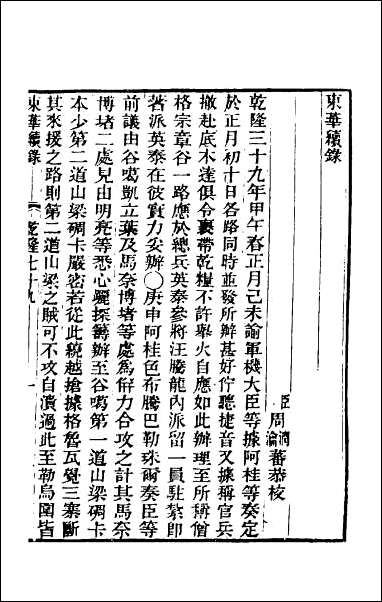 東華續錄
臣周潤蕃恭校
瀹
乾隆三十九年甲午春正月己未諭軍機大臣等據阿桂等奏定
於正月初十日各路同時並發所辦甚好佇聽捷音又據稱官兵
撤赴底木達俱令裹帶乾糧不許舉火自應如此辦理至所稱僧
格宗章谷一路應於總兵英泰參將汪騰龍內派留一員駐紮即
著派英泰在彼實力妥辦○庚申阿桂色布騰巴勒珠爾奏臣等
前議由谷噶凱立葉及馬奈博堵等處為併力合攻之計其馬奈
博堵二處見由明亮等悉心躧探籌辦至谷噶第一道山梁碉卡
本少第二道山梁碉卡嚴密若從此繞越搶據格魯瓦覺三寨斷
其來援之路則第二道山梁之賊可不攻自潰過此至勒烏圍皆
東華續錄 乾隆七十九 一